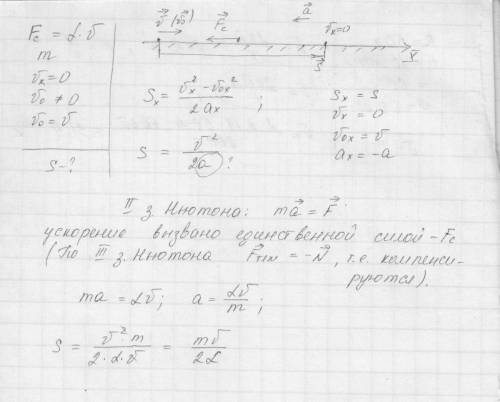 Fc = α·v
m
vₖ = 0
v₀ ≠ 0
v₀ = v
S - ?
v⃗ (v⃗₀) F⃗c a⃗ vₖ = 0
S⃗ X
Sₓ = (vₓ² - v₀ₓ²) / 2aₓ ;
S = v² / 2a ?
Sₓ = S
vₓ = 0
v₀ₓ = v
aₓ = -a
II з. Нютона: ma⃗ = F⃗
ускорение вызвано единственной силой - Fc
(По III з. Нютона F⃗тяж = -N⃗, т.е. компенси-
руются).
ma = αv; a = αv / m ;
S = v²·m / 2·α·v = mv / 2α